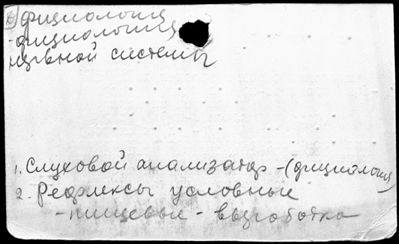 физиология
-физиология
нервной системы
1. Слуховой анализатор - (физиология)
2. Рефлексы условные
- пищевые - выработка